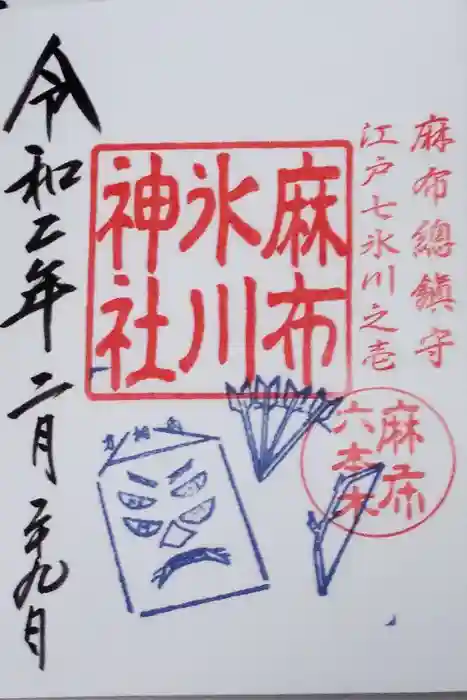 麻布總鎮守
江戸七氷川之壱
麻布
氷川
神社
麻布
六本木
令和二年二月二十九日